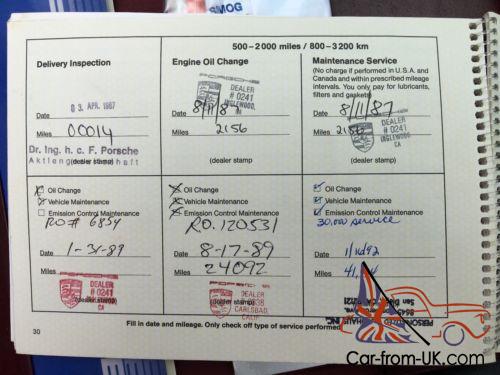 SMOG
500-2000 miles / 800-3200 km
Delivery Inspection
03. APR. 1987
Date
Miles 00014
Dr. Ing. h. c. F. Porsche
Aktiengesellschaft
(dealer stamp)
Engine Oil Change
PORSCHE
DEALER
# 0241
INGLEWOOD,
Date 8/11/87
Miles 2156
(dealer stamp)
Maintenance Service
(No charge if performed in U.S.A. and
Canada and within prescribed mileage
intervals. You only pay for lubricants,
filters and gaskets)
Date 8/11/87
Miles 2156
DEALER
# 0241
INGLEWOOD
CA
(dealer stamp)
Oil Change
Vehicle Maintenance
Emission Control Maintenance
RO# 6854
Date 1-31-89
Miles
DEALER
# 0241
(dealer stamp)
CA
Oil Change
Vehicle Maintenance
Emission Control Maintenance
RO. 120531
Date 8-17-89
Miles 24092
DEALER
(dealer stamp)
CARLSBAD,
CALIF
Oil Change
Vehicle Maintenance
Emission Control Maintenance
30,000 service
Date
Miles
30
Fill in date and mileage. Only check off type of service performed
Car-from-UK.com